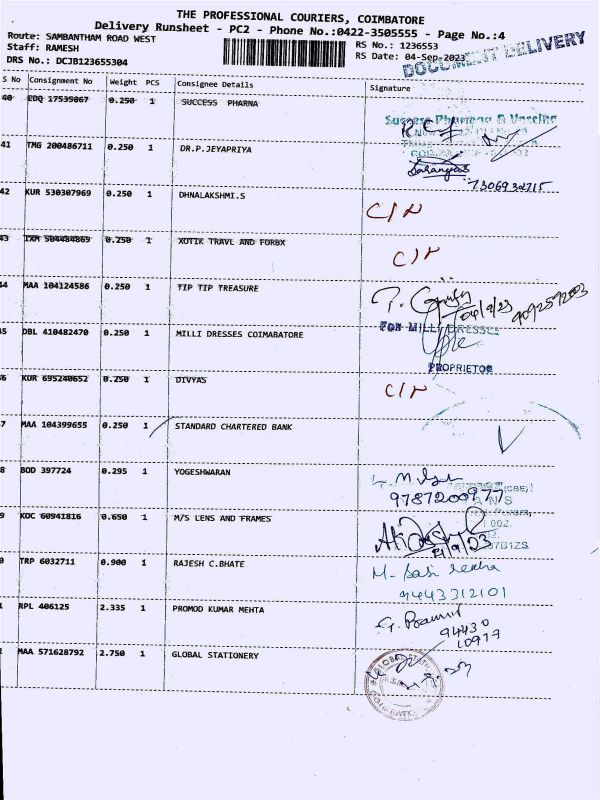 THE PROFESSIONAL COURIERS, COIMBATORE
Delivery Runsheet - PC2 - Phone No.:0422-3505555 - Page No.:4
Route: SAMBANTHAM ROAD WEST
Staff: RAMESH
RS No.: 1236553
DRS No.: DCJB123655304
RS Date: 04-Sep-2023
DOCUMENT DELIVERY
S No Consignment No Weight PCS Consignee Details Signature
40 EDQ 17535867 0.250 1 SUCCESS PHARNA
Success Pharmaa & Vaccine
41 TMG 200486711 0.250 1 DR.P.JEYAPRIYA
7306932715
42 KUR 530307969 0.250 1 DHNALAKSHMI.S C/R
43 IXM 504484869 0.250 1 XOTIK TRAVL AND FORBX C/R
44 MAA 104124586 0.250 1 TIP TIP TREASURE
04/9/23 9092592003
5 DBL 410482470 0.250 1 MILLI DRESSES COIMABATORE
FOR MILLI DRESSES
PROPRIETOR
6 KUR 695240652 0.250 1 DIVYAS C/R
7 MAA 104399655 0.250 1 STANDARD CHARTERED BANK
8 BOD 397724 0.295 1 YOGESHWARAN
9787200977
9 KOC 60941816 0.650 1 M/S LENS AND FRAMES
4/9/23
TRP 6032711 0.900 1 RAJESH C.BHATE
M- Sasi rekha
9443312101
1 RPL 406125 2.335 1 PROMOD KUMAR MEHTA
94430
10977
2 MAA 571628792 2.750 1 GLOBAL STATIONERY